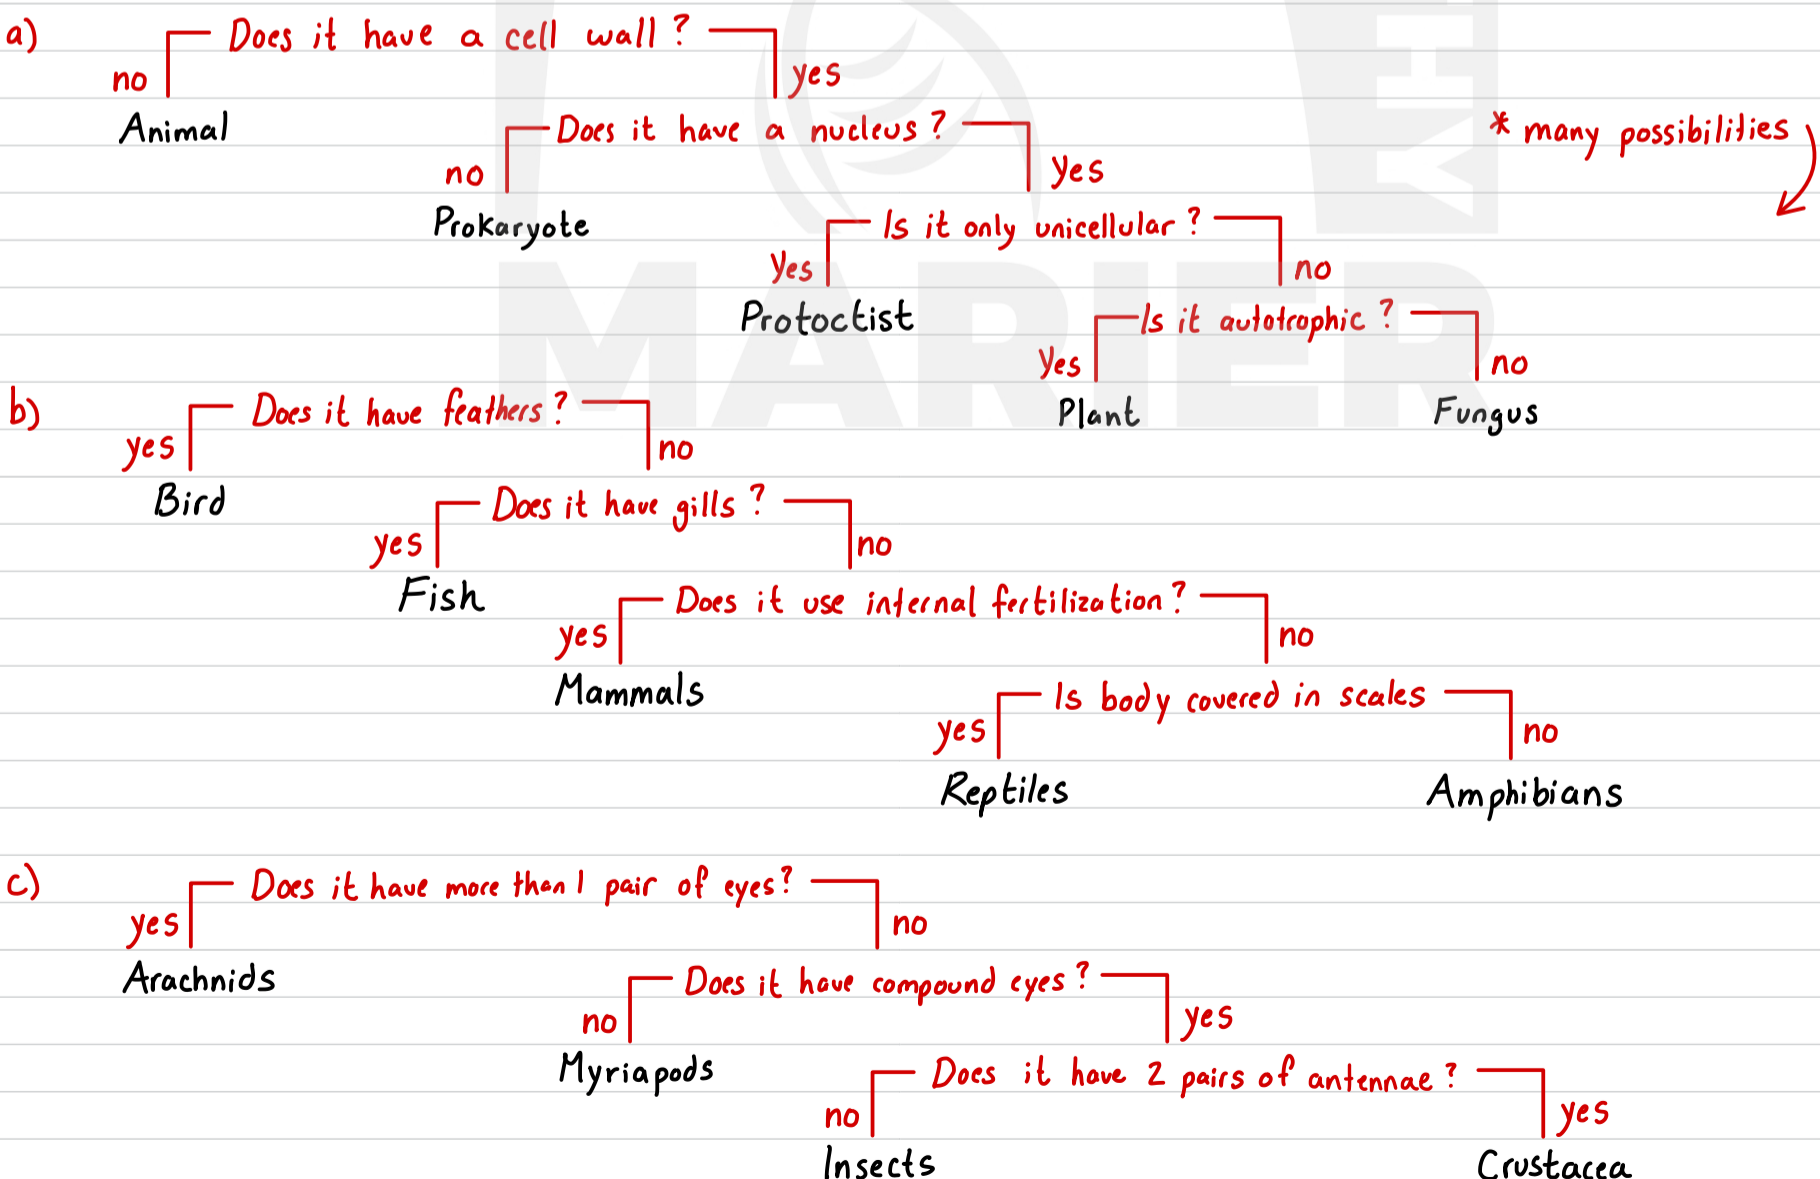 a) Does it have a cell wall?
no yes
Animal Does it have a nucleus? * many possibilities
no yes
Prokaryote Is it only unicellular?
Yes no
Protoctist Is it autotrophic?
Yes no
b) Does it have feathers? Plant Fungus
yes no
Bird Does it have gills?
yes no
Fish Does it use internal fertilization?
yes no
Mammals Is body covered in scales
yes no
Reptiles Amphibians
c) Does it have more than 1 pair of eyes?
yes no
Arachnids Does it have compound eyes?
no yes
Myriapods Does it have 2 pairs of antennae?
no yes
Insects Crustacea
MARIER